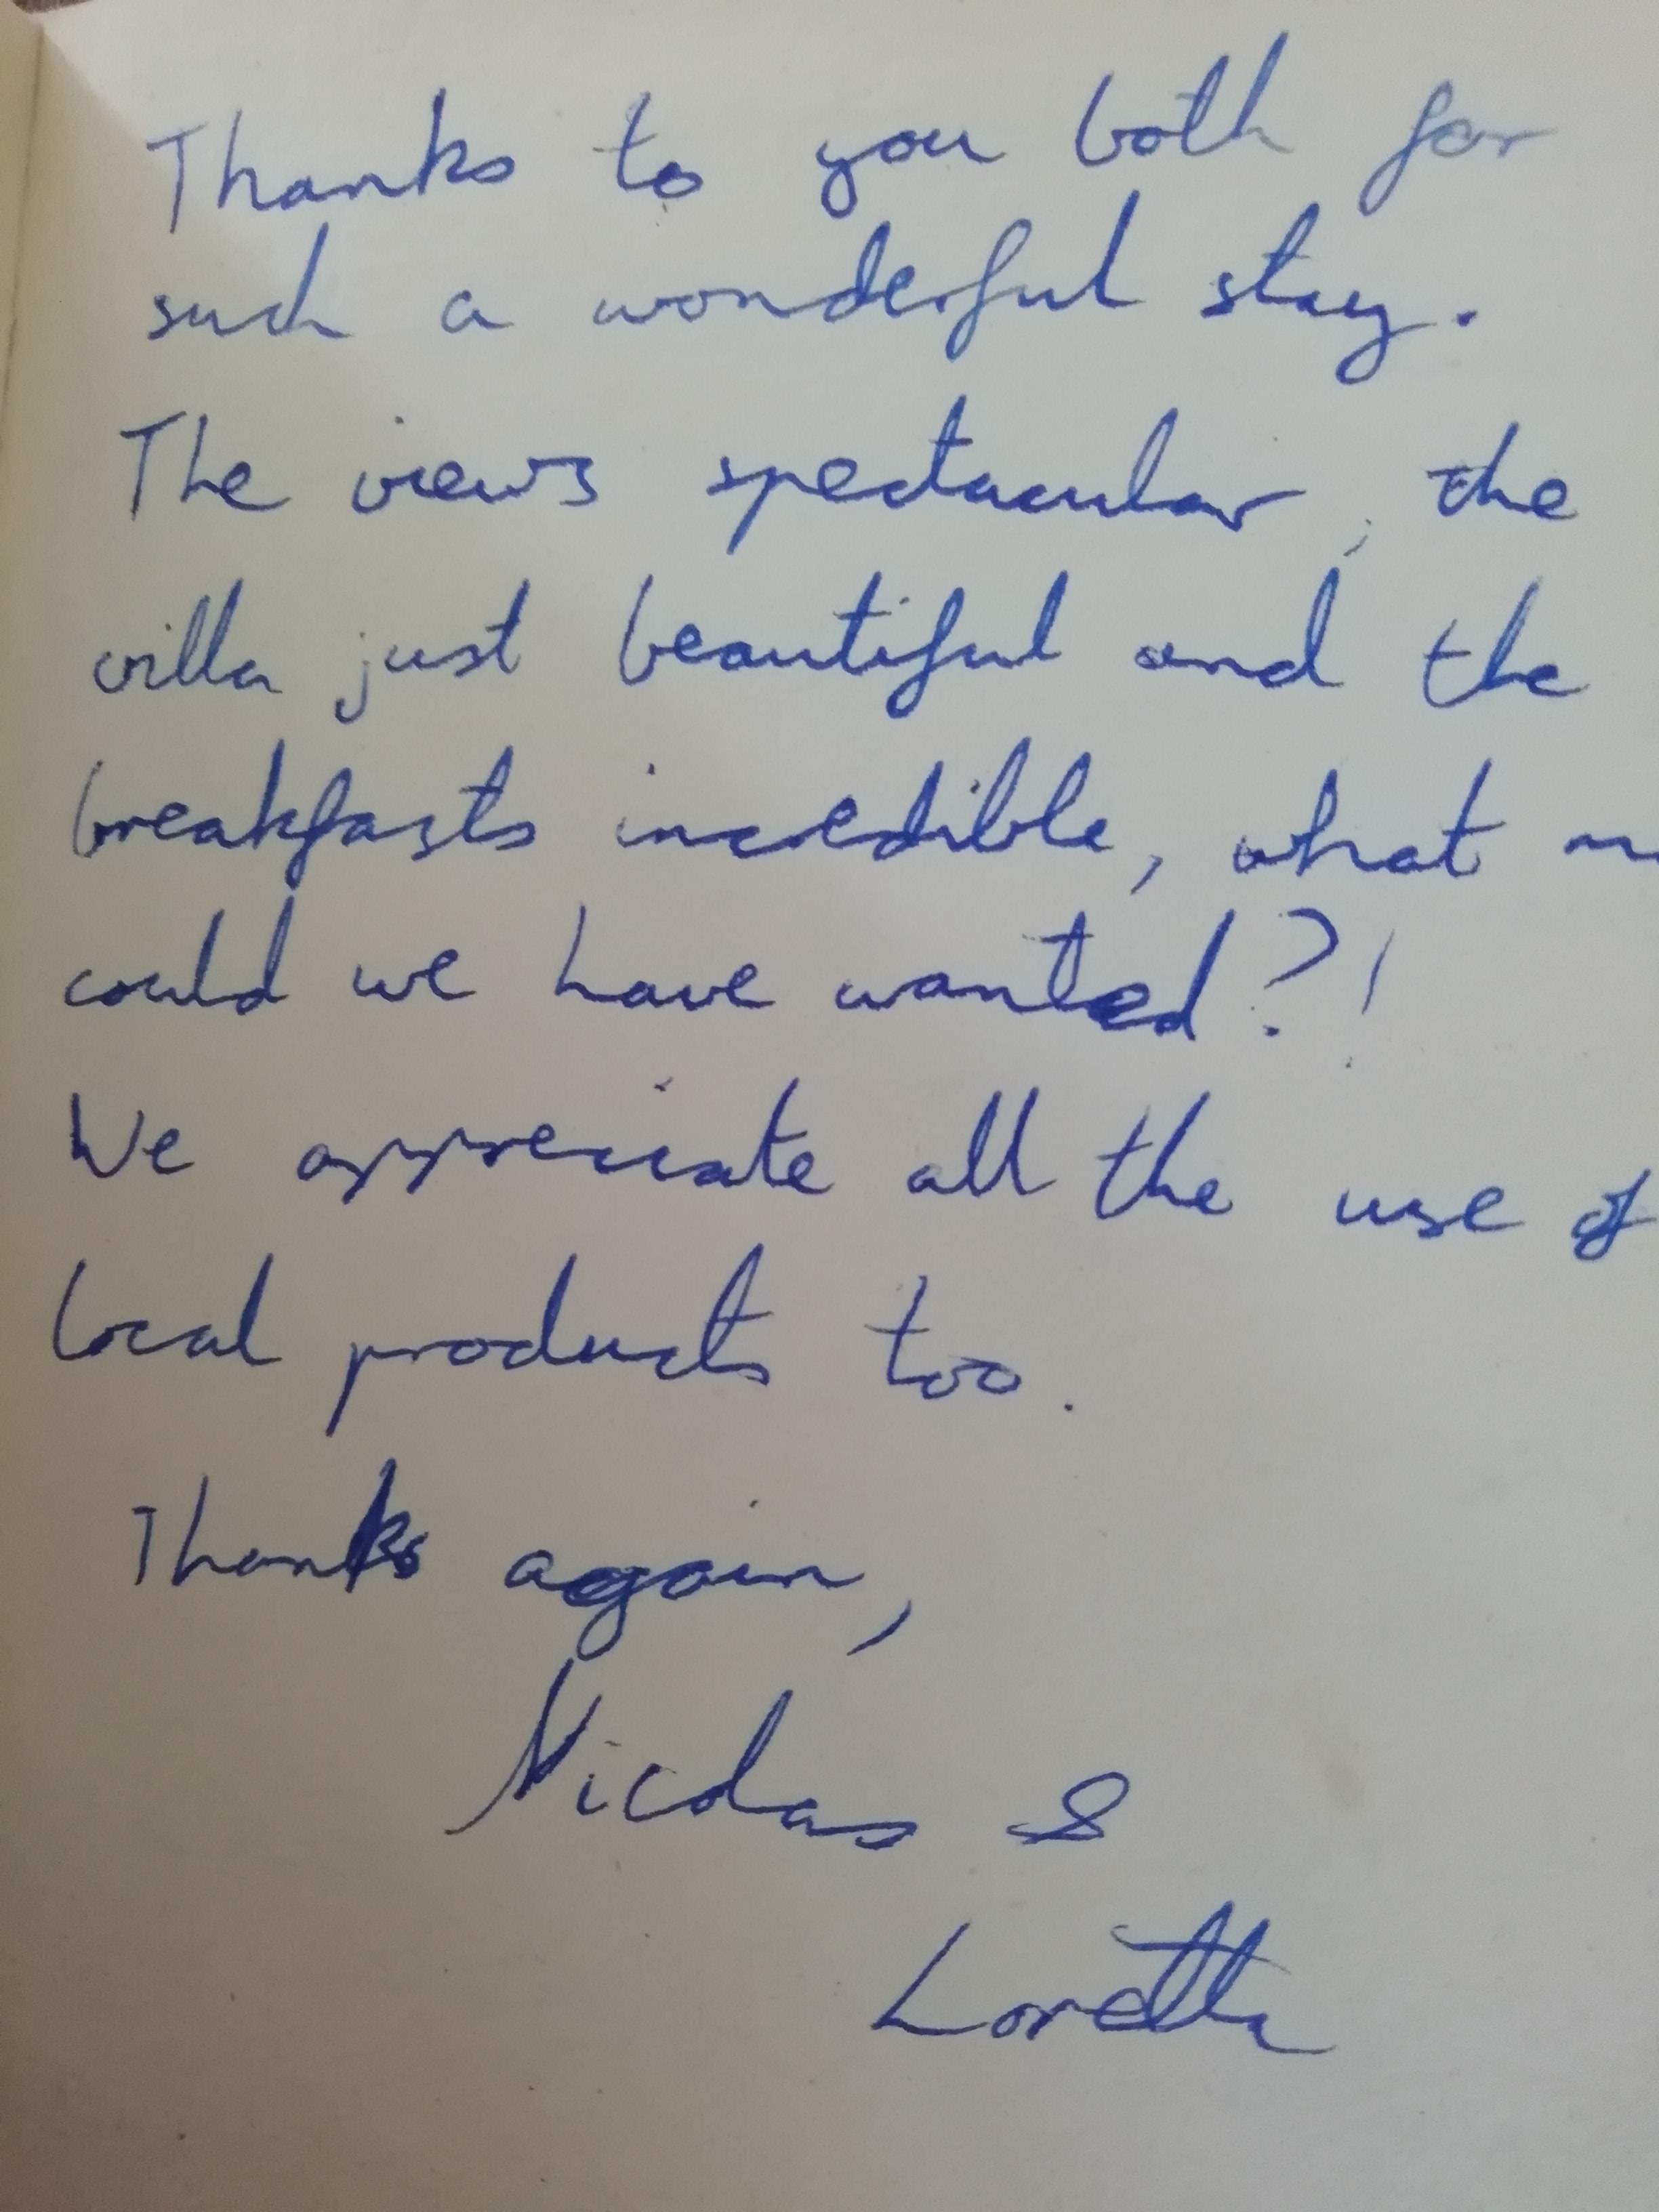 Thanks to you both for
such a wonderful stay.
The views spectacular, the
villa just beautiful and the
breakfasts incredible, what
could we have wanted?!
We appreciate all the use of
local products too.
Thanks again,
Nicolas &
Loretta